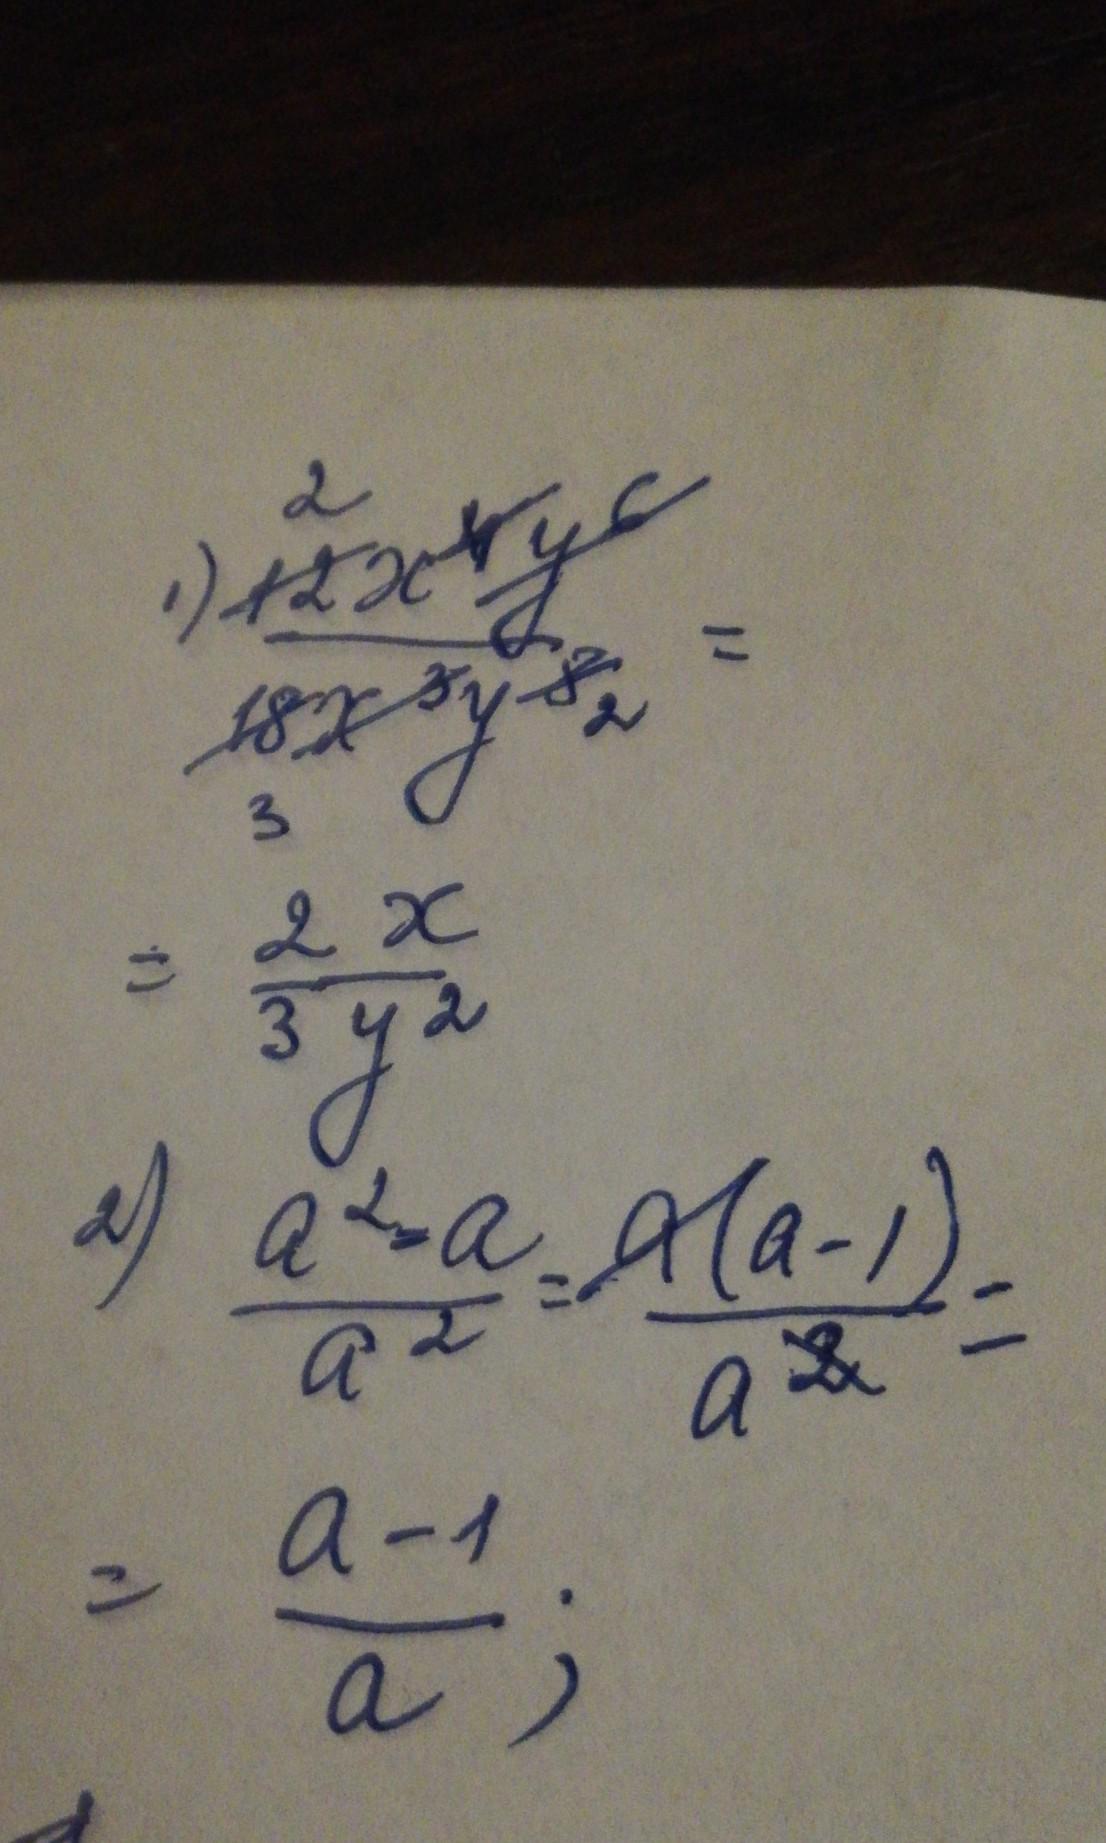 1) 12x⁴y⁶ / 18x³y⁸ =
2
3
2
= 2x / 3y²
2) a² - a / a² = a(a-1) / a² =
= a-1 / a ;